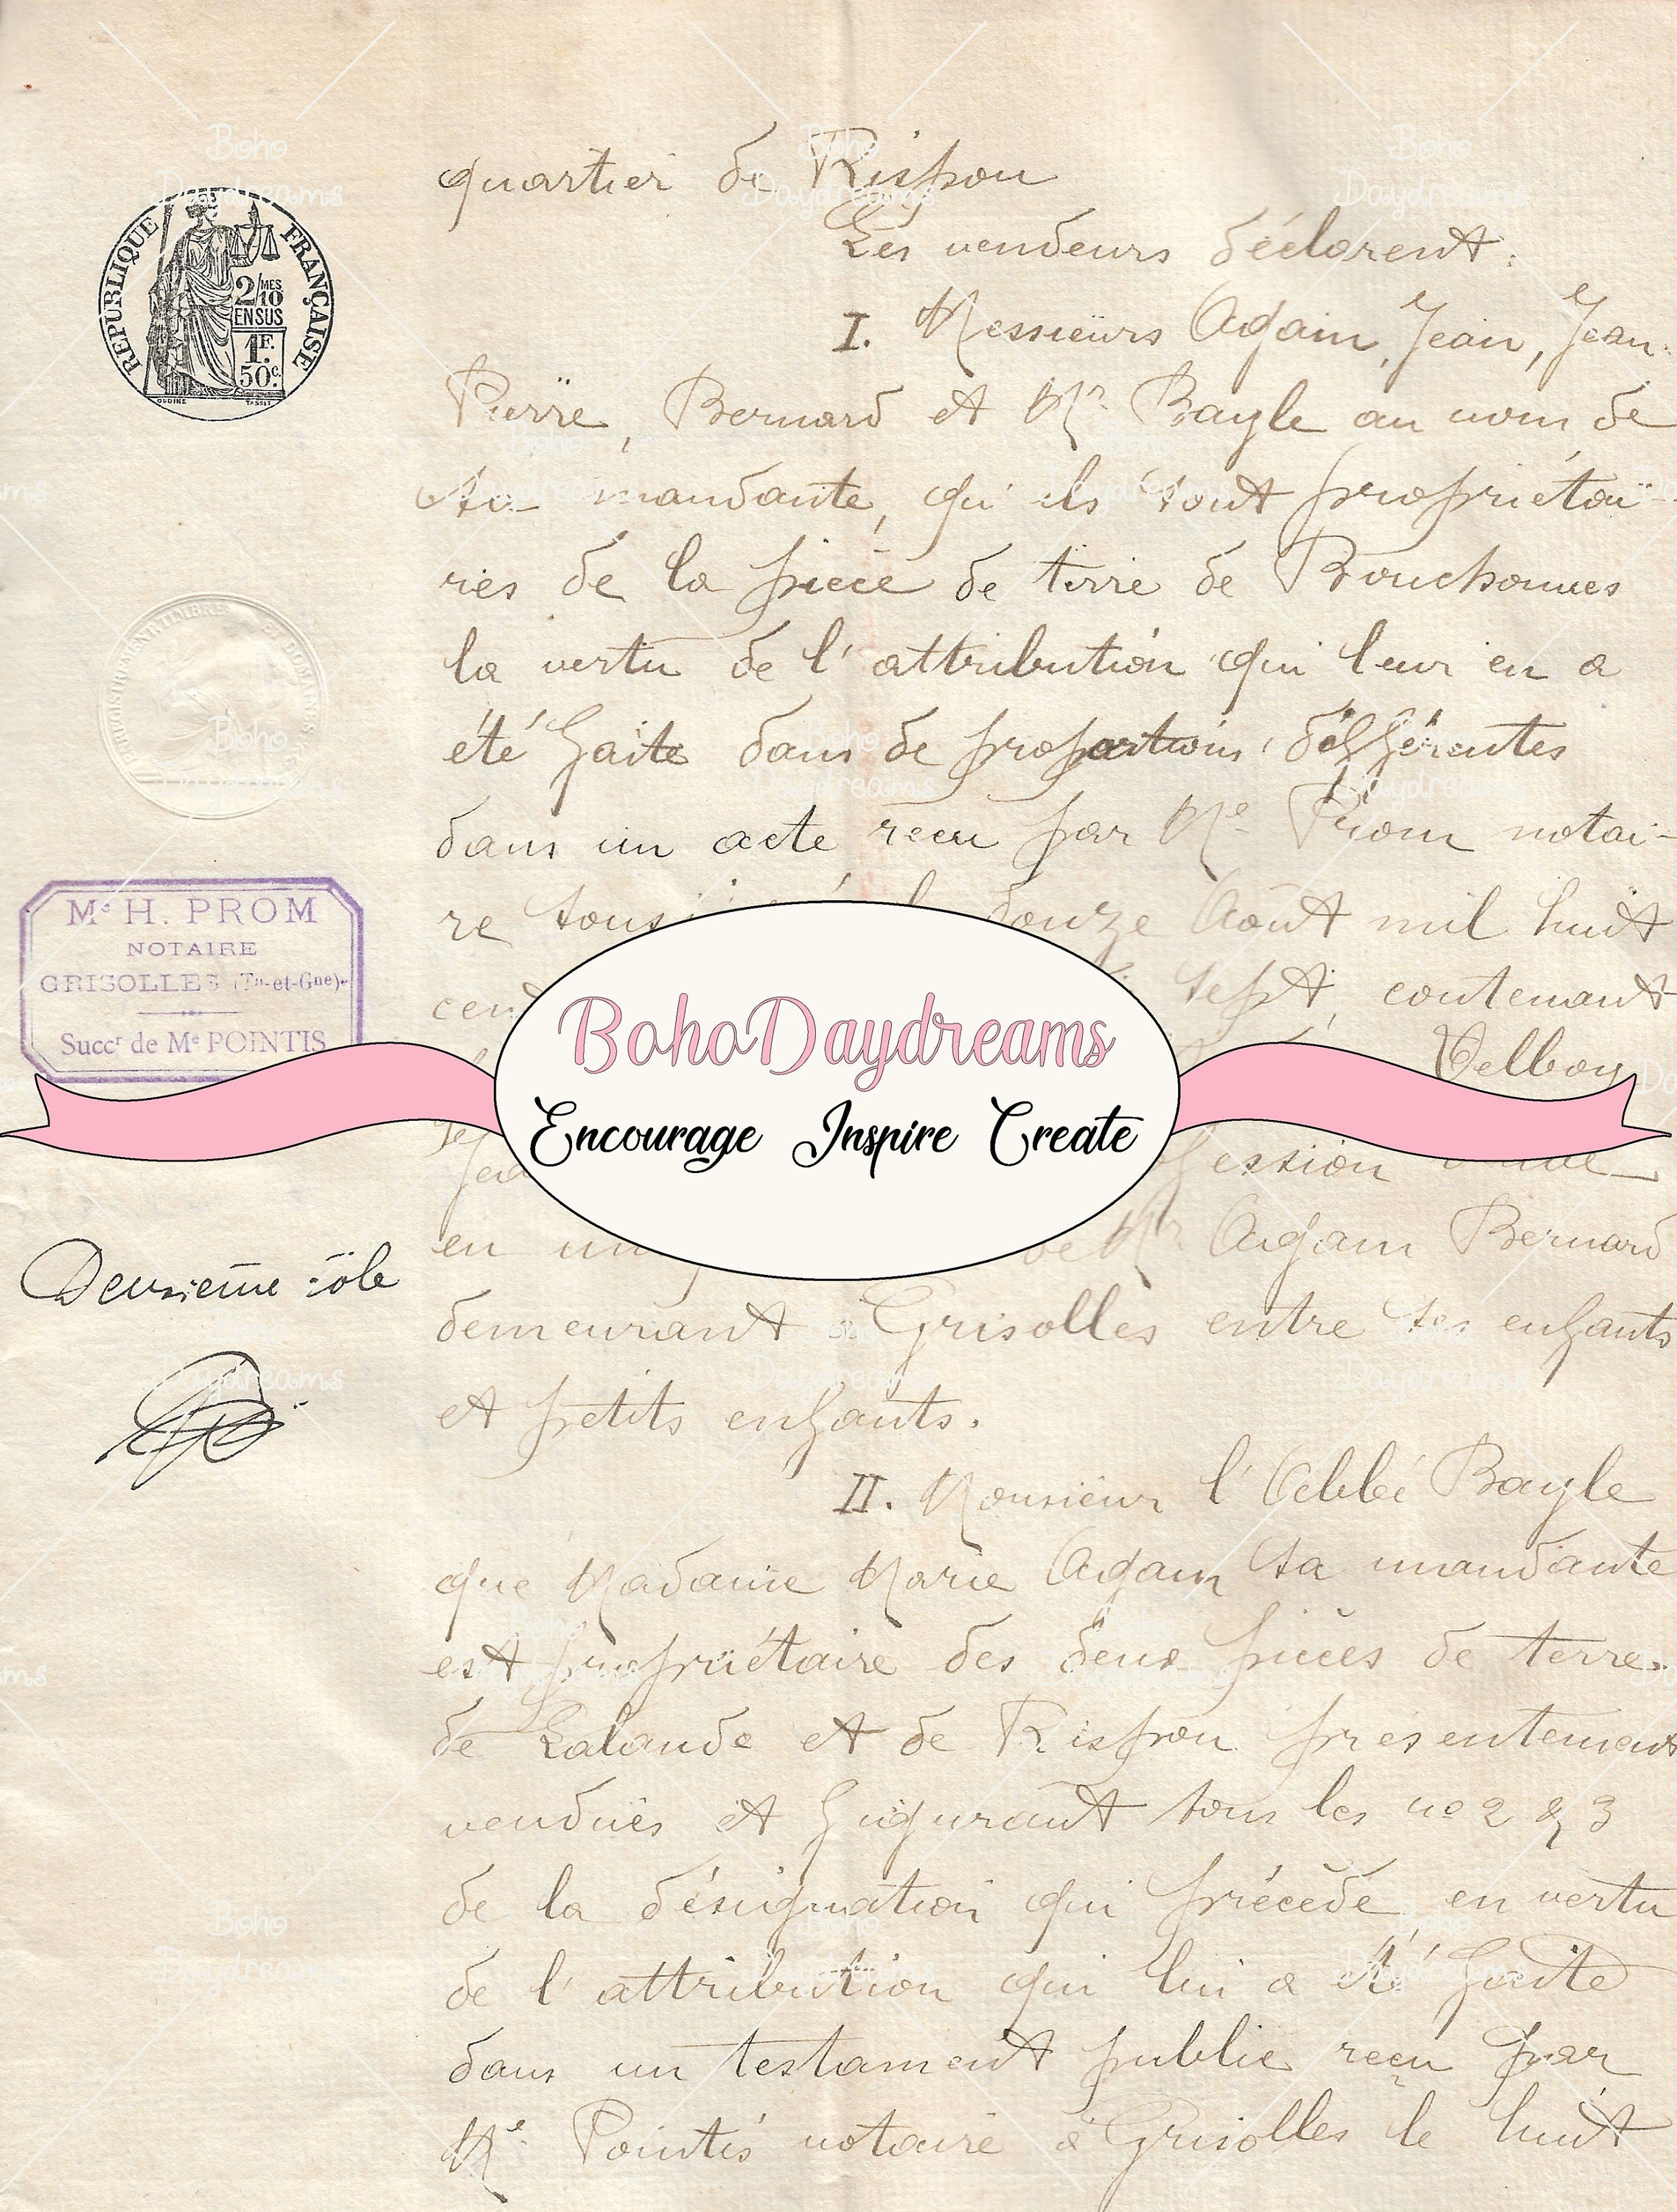 quartier de Rispou
Les vendeurs déclarent:
I. Messieurs Agam, Jean, Jean-
Pierre, Bernard et Mr Bayle au nom de
sa mandante, qu'ils sont propriétai-
res de la pièce de terre de Bouchonnes
la vertu de l'attribution qui leur en a
été faite dans de proportions différentes
dans un acte reçu par Me Prom notai-
re douze Août mil huit
sept, contenant
Delboy
en Mr Agam Bernard
demeurant à Grisolles entre ses enfants
et petits enfants.
II. Monsieur l'Abbé Bayle
que Madame Marie Agam sa mandante
est propriétaire des deux pièces de terre
de Lalande et de Rispou présentement
vendues et figurant sous les no 2 & 3
de la désignation qui précède, en vertu
de l'attribution qui lui a été faite
dans un testament public reçu par
Me Pointis notaire à Grisolles le huit
REPUBLIQUE FRANÇAISE
2/10 MES
EN SUS
1F.
50c.
OUDINE
TASSET
TIMBRE ET DOMAINES
Me H. PROM
NOTAIRE
GRISOLLES (Tn-et-Gne)
Succr de Me POINTIS
Deuxième rôle
BohoDaydreams
Encourage Inspire Create
Boho
Daydreams